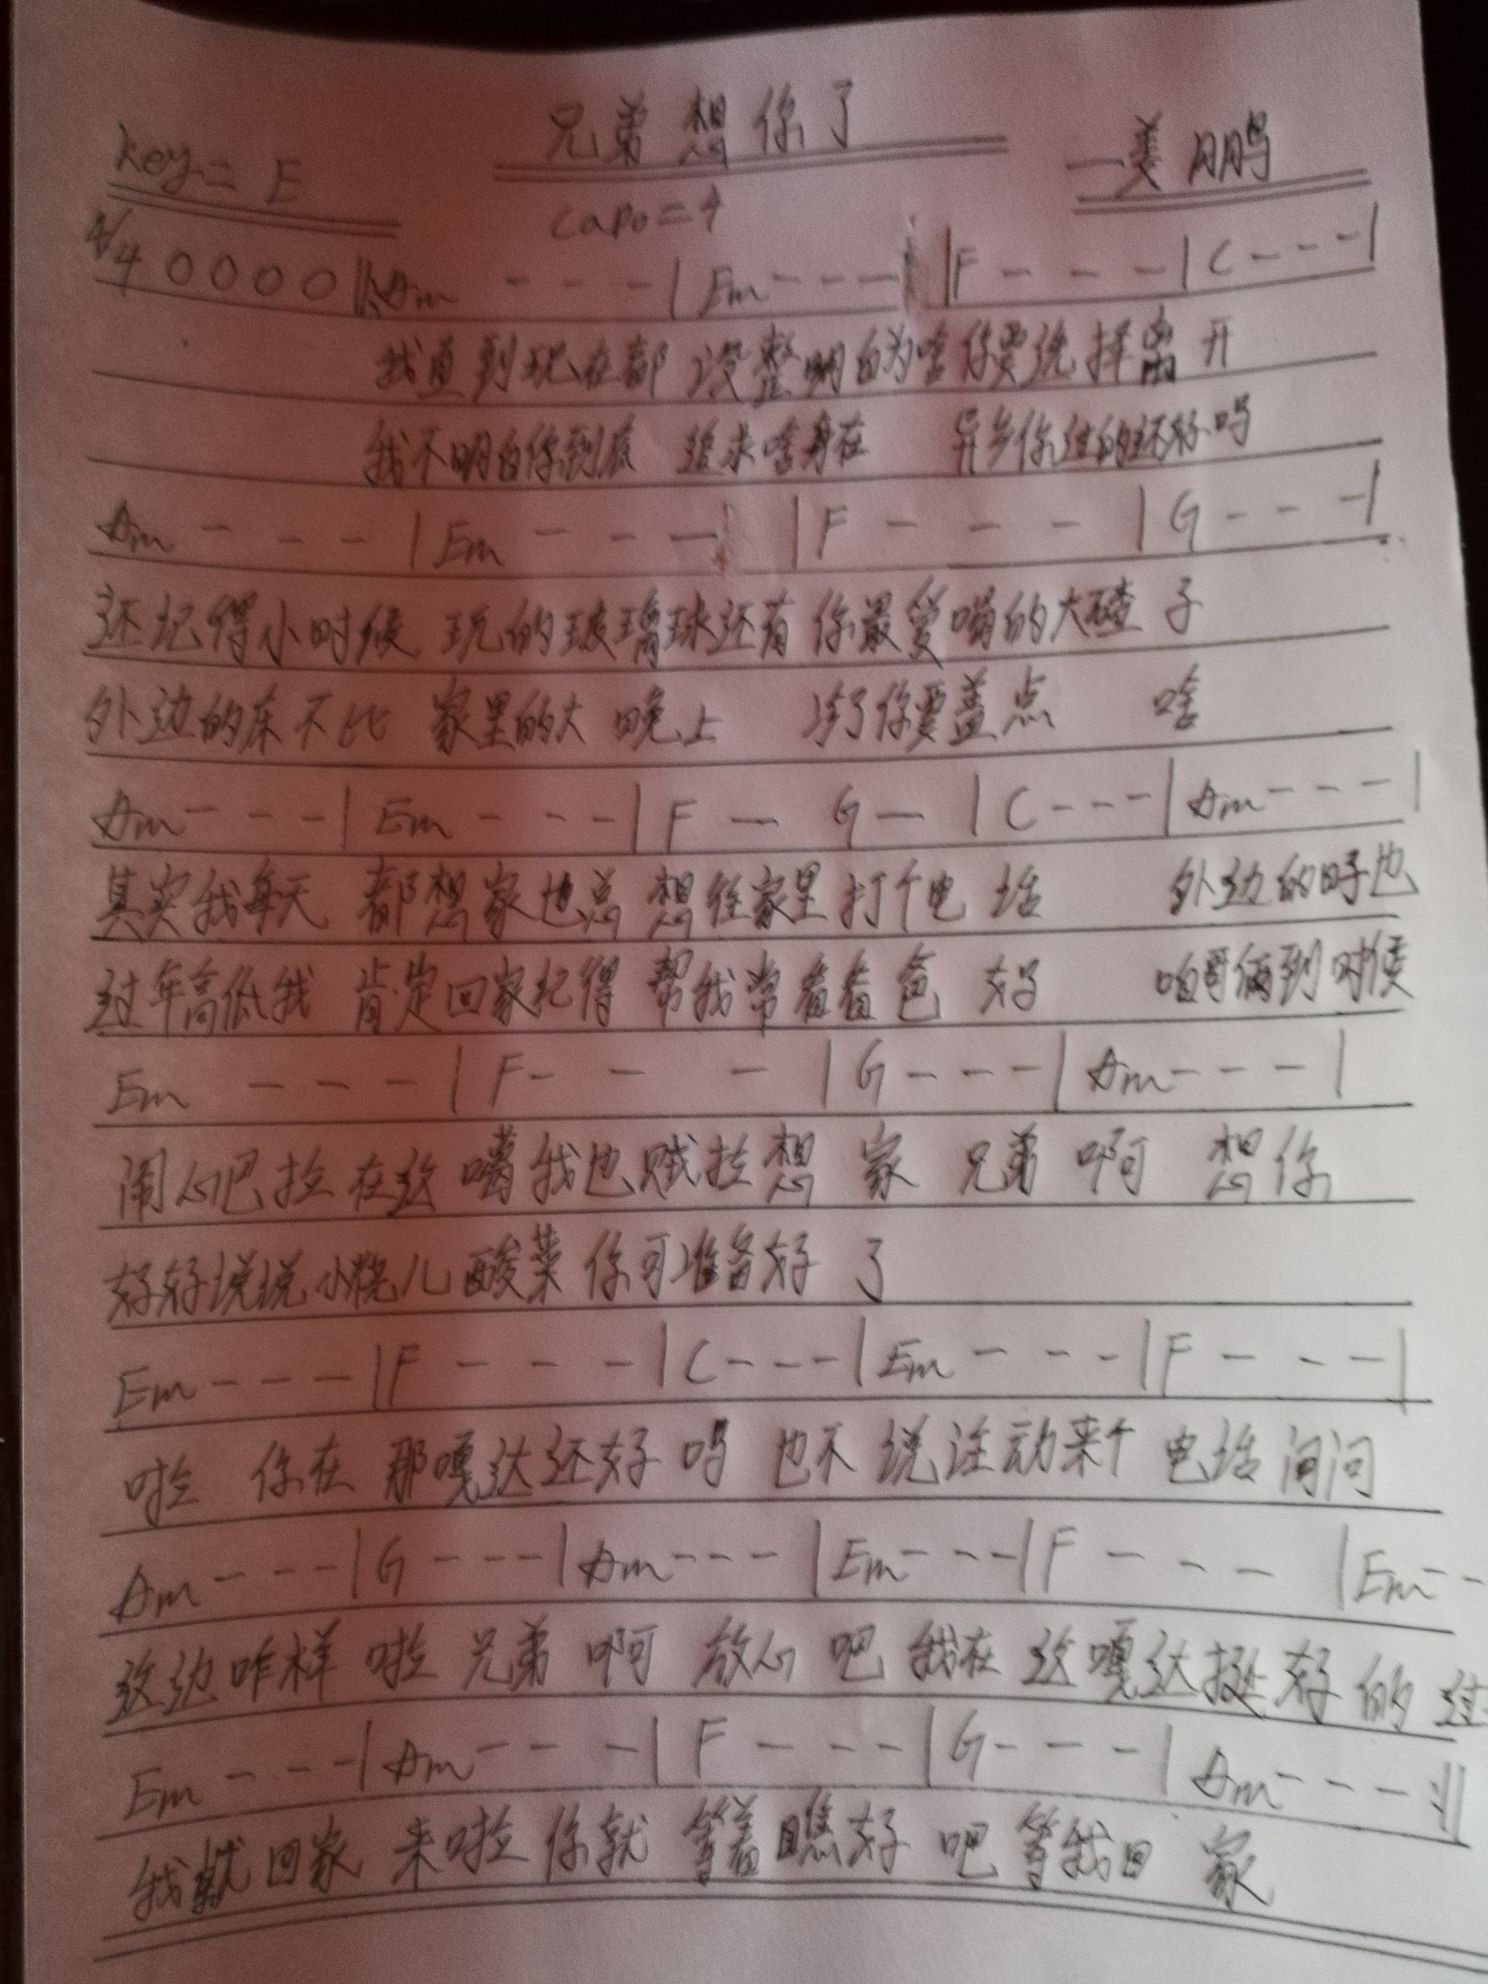 兄弟想你了
key= E
capo=4
一姜鹏
4/4 0 0 0 0 ‖: Am - - - | Em - - - | F - - - | C - - - |
我直到现在都没整明白为啥你要选择离开
我不明白你到底 追求啥身在 异乡你过的还好吗
Am - - - | Em - - - | F - - - | G - - - |
还记得小时候 玩的玻璃球还有你最爱嚼的大碴子
外边的床不比 家里的大 晚上 冷了你要盖点 啥
Am - - - | Em - - - | F - G - | C - - - | Am - - - |
其实我每天 都想家也总 想往家里打个电 话 外边的日子也
过年高低我 肯定回家记得 帮我常看看爸 好 咱哥俩到时候
Em - - - | F - - - | G - - - | Am - - - |
闹心巴拉在这 噶我也贼拉想 家 兄弟 啊 想你
好好说说小烧儿酸菜你可准备好 了
Em - - - | F - - - | C - - - | Em - - - | F - - - |
啦 你在 那嘎达还好 吗 也不 说主动来个 电话问问
Am - - - | G - - - | Am - - - | Em - - - | F - - - | Em - -
这边咋样 啦 兄弟 啊 放心 吧 我在 这嘎达挺好的 过
Em - - - | Am - - - | F - - - | G - - - | Am - - - :‖
我就回家 来啦你就 等着瞧好 吧 等我回 家